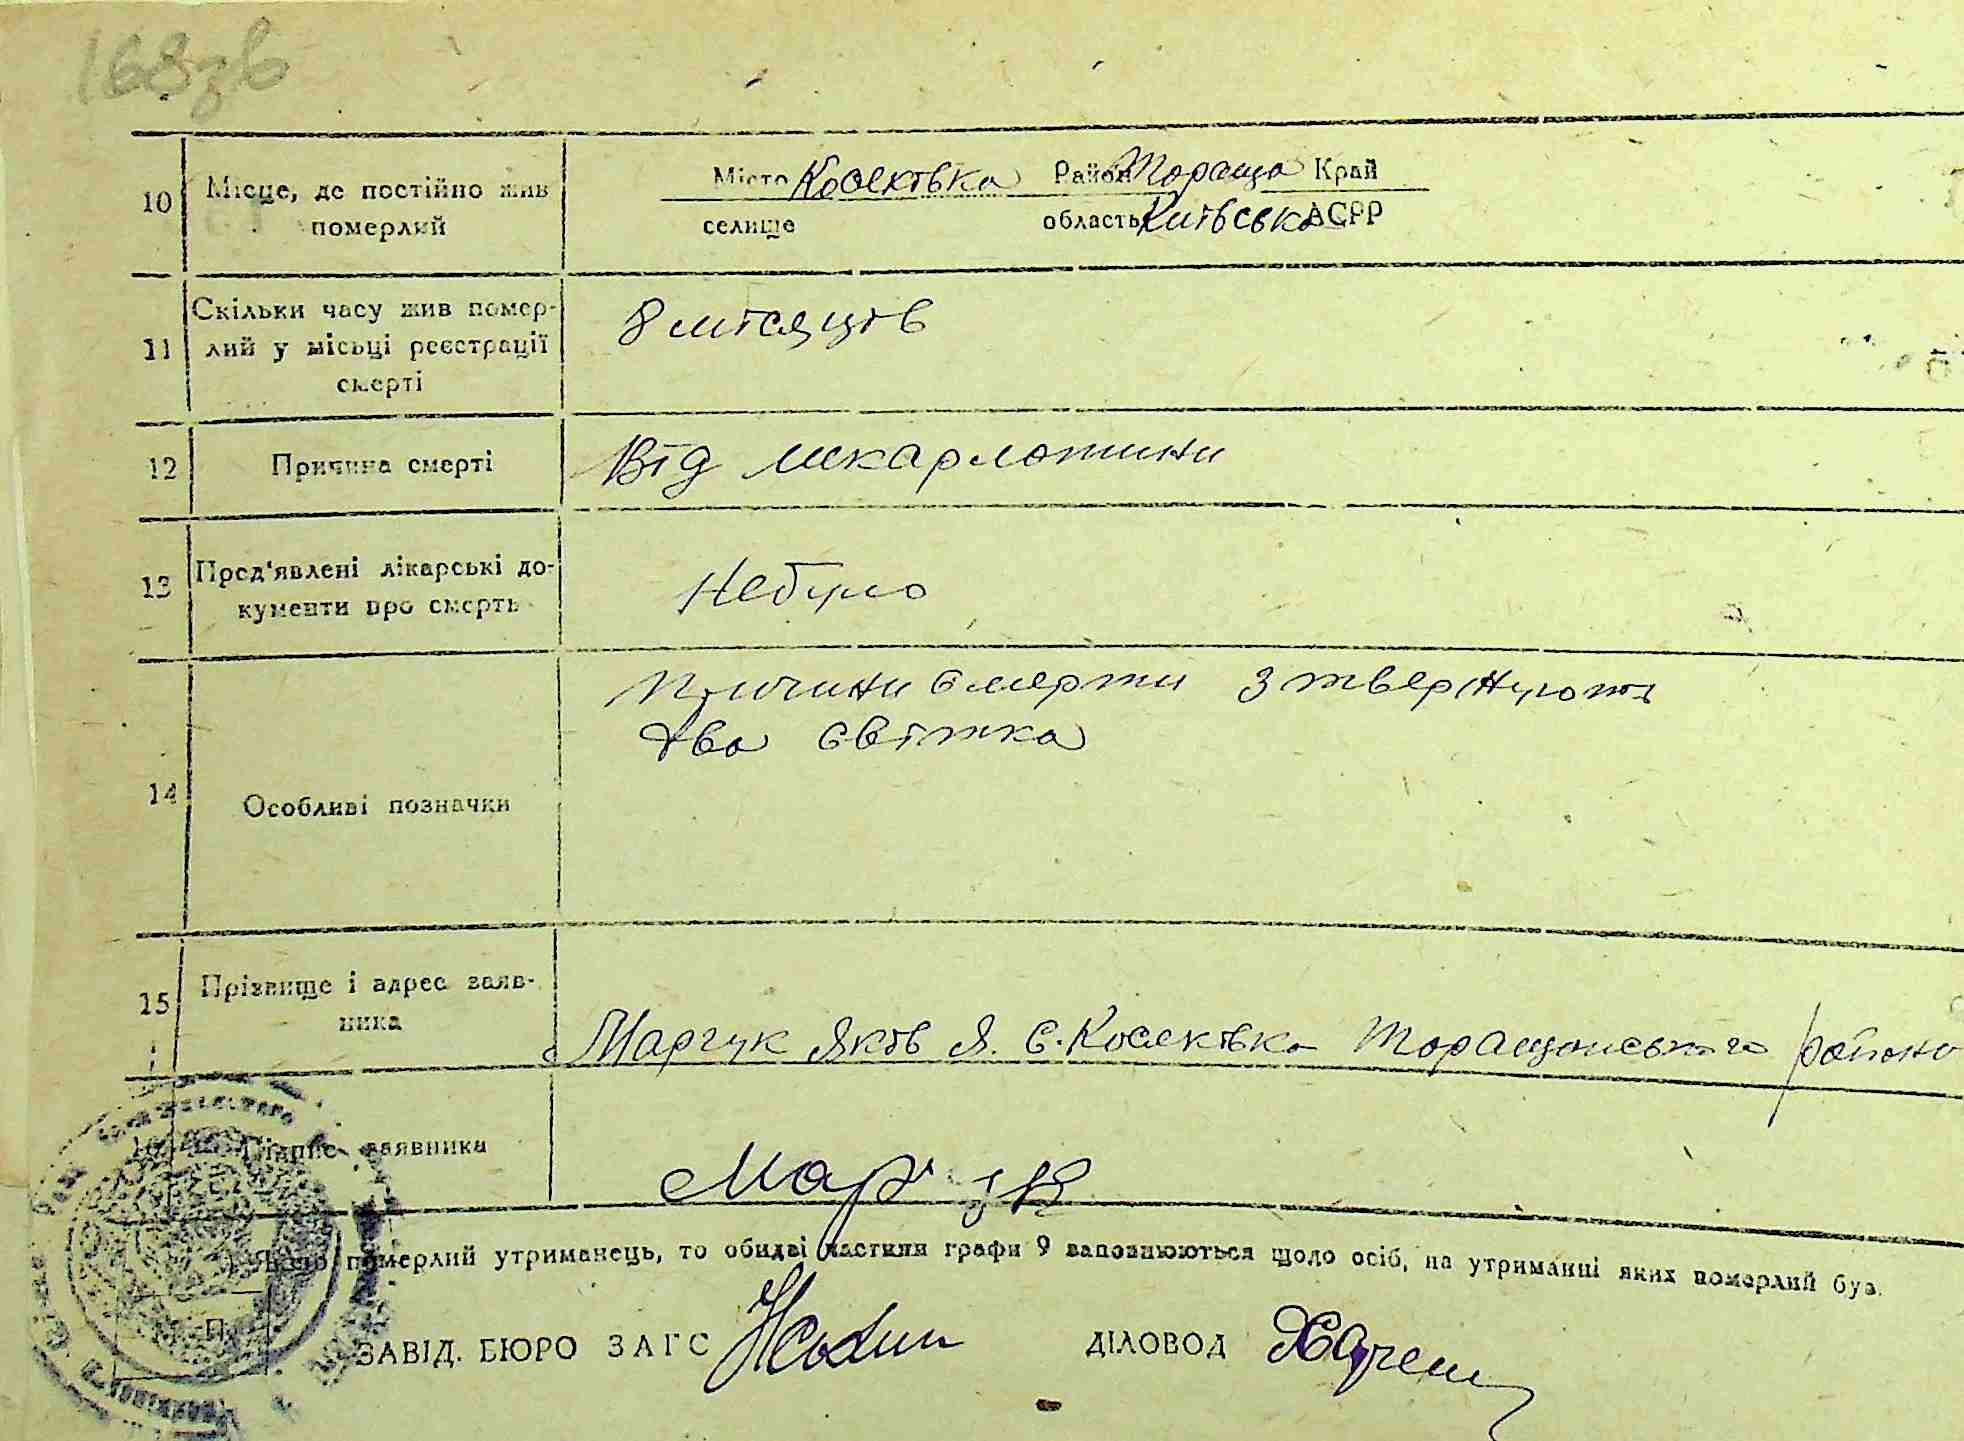 168зв
10 Місце, де постійно жив померлий
Місто Косяківка Район Тараща Край
селище область Київська АСРР
11 Скільки часу жив помер-
лий у місьці реєстрації
смерті
8 місяців
12 Причина смерті Від шкарлатини
13 Пред'явлені лікарські до-
кументи про смерть
Небуло
14 Особливі позначки
Причини смерти
два світка
15 Прізвище і адреса заяв-
ника
Марчук Яків Я. с. Косяківка Таращанського району
16 Підпис заявника Марчук
Якщо померлий утриманець, то обидві частини графи 9 заповнюються щодо осіб, на утриманні яких померлий був.
М. П.
ЗАВІД. БЮРО ЗАГС ДІЛОВОД